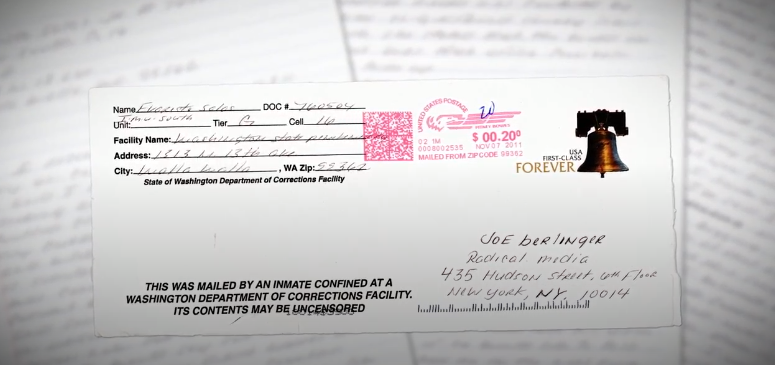 Name Evaristo Salas DOC # 760504
Unit: Imu-South Tier G Cell 16
Facility Name: Washington state penitentiary
Address: 1313 N. 13th ave
City: Walla Walla, WA Zip: 99362
State of Washington Department of Corrections Facility
UNITED STATES POSTAGE
PITNEY BOWES
02 1M $ 00.20⁰
0008002535 NOV 07 2011
MAILED FROM ZIPCODE 99362
USA
FIRST-CLASS
FOREVER
JOE berlinger
Radical media
435 Hudson Street, 6th Floor
New York, NY. 10014
THIS WAS MAILED BY AN INMATE CONFINED AT A
WASHINGTON DEPARTMENT OF CORRECTIONS FACILITY.
ITS CONTENTS MAY BE UNCENSORED